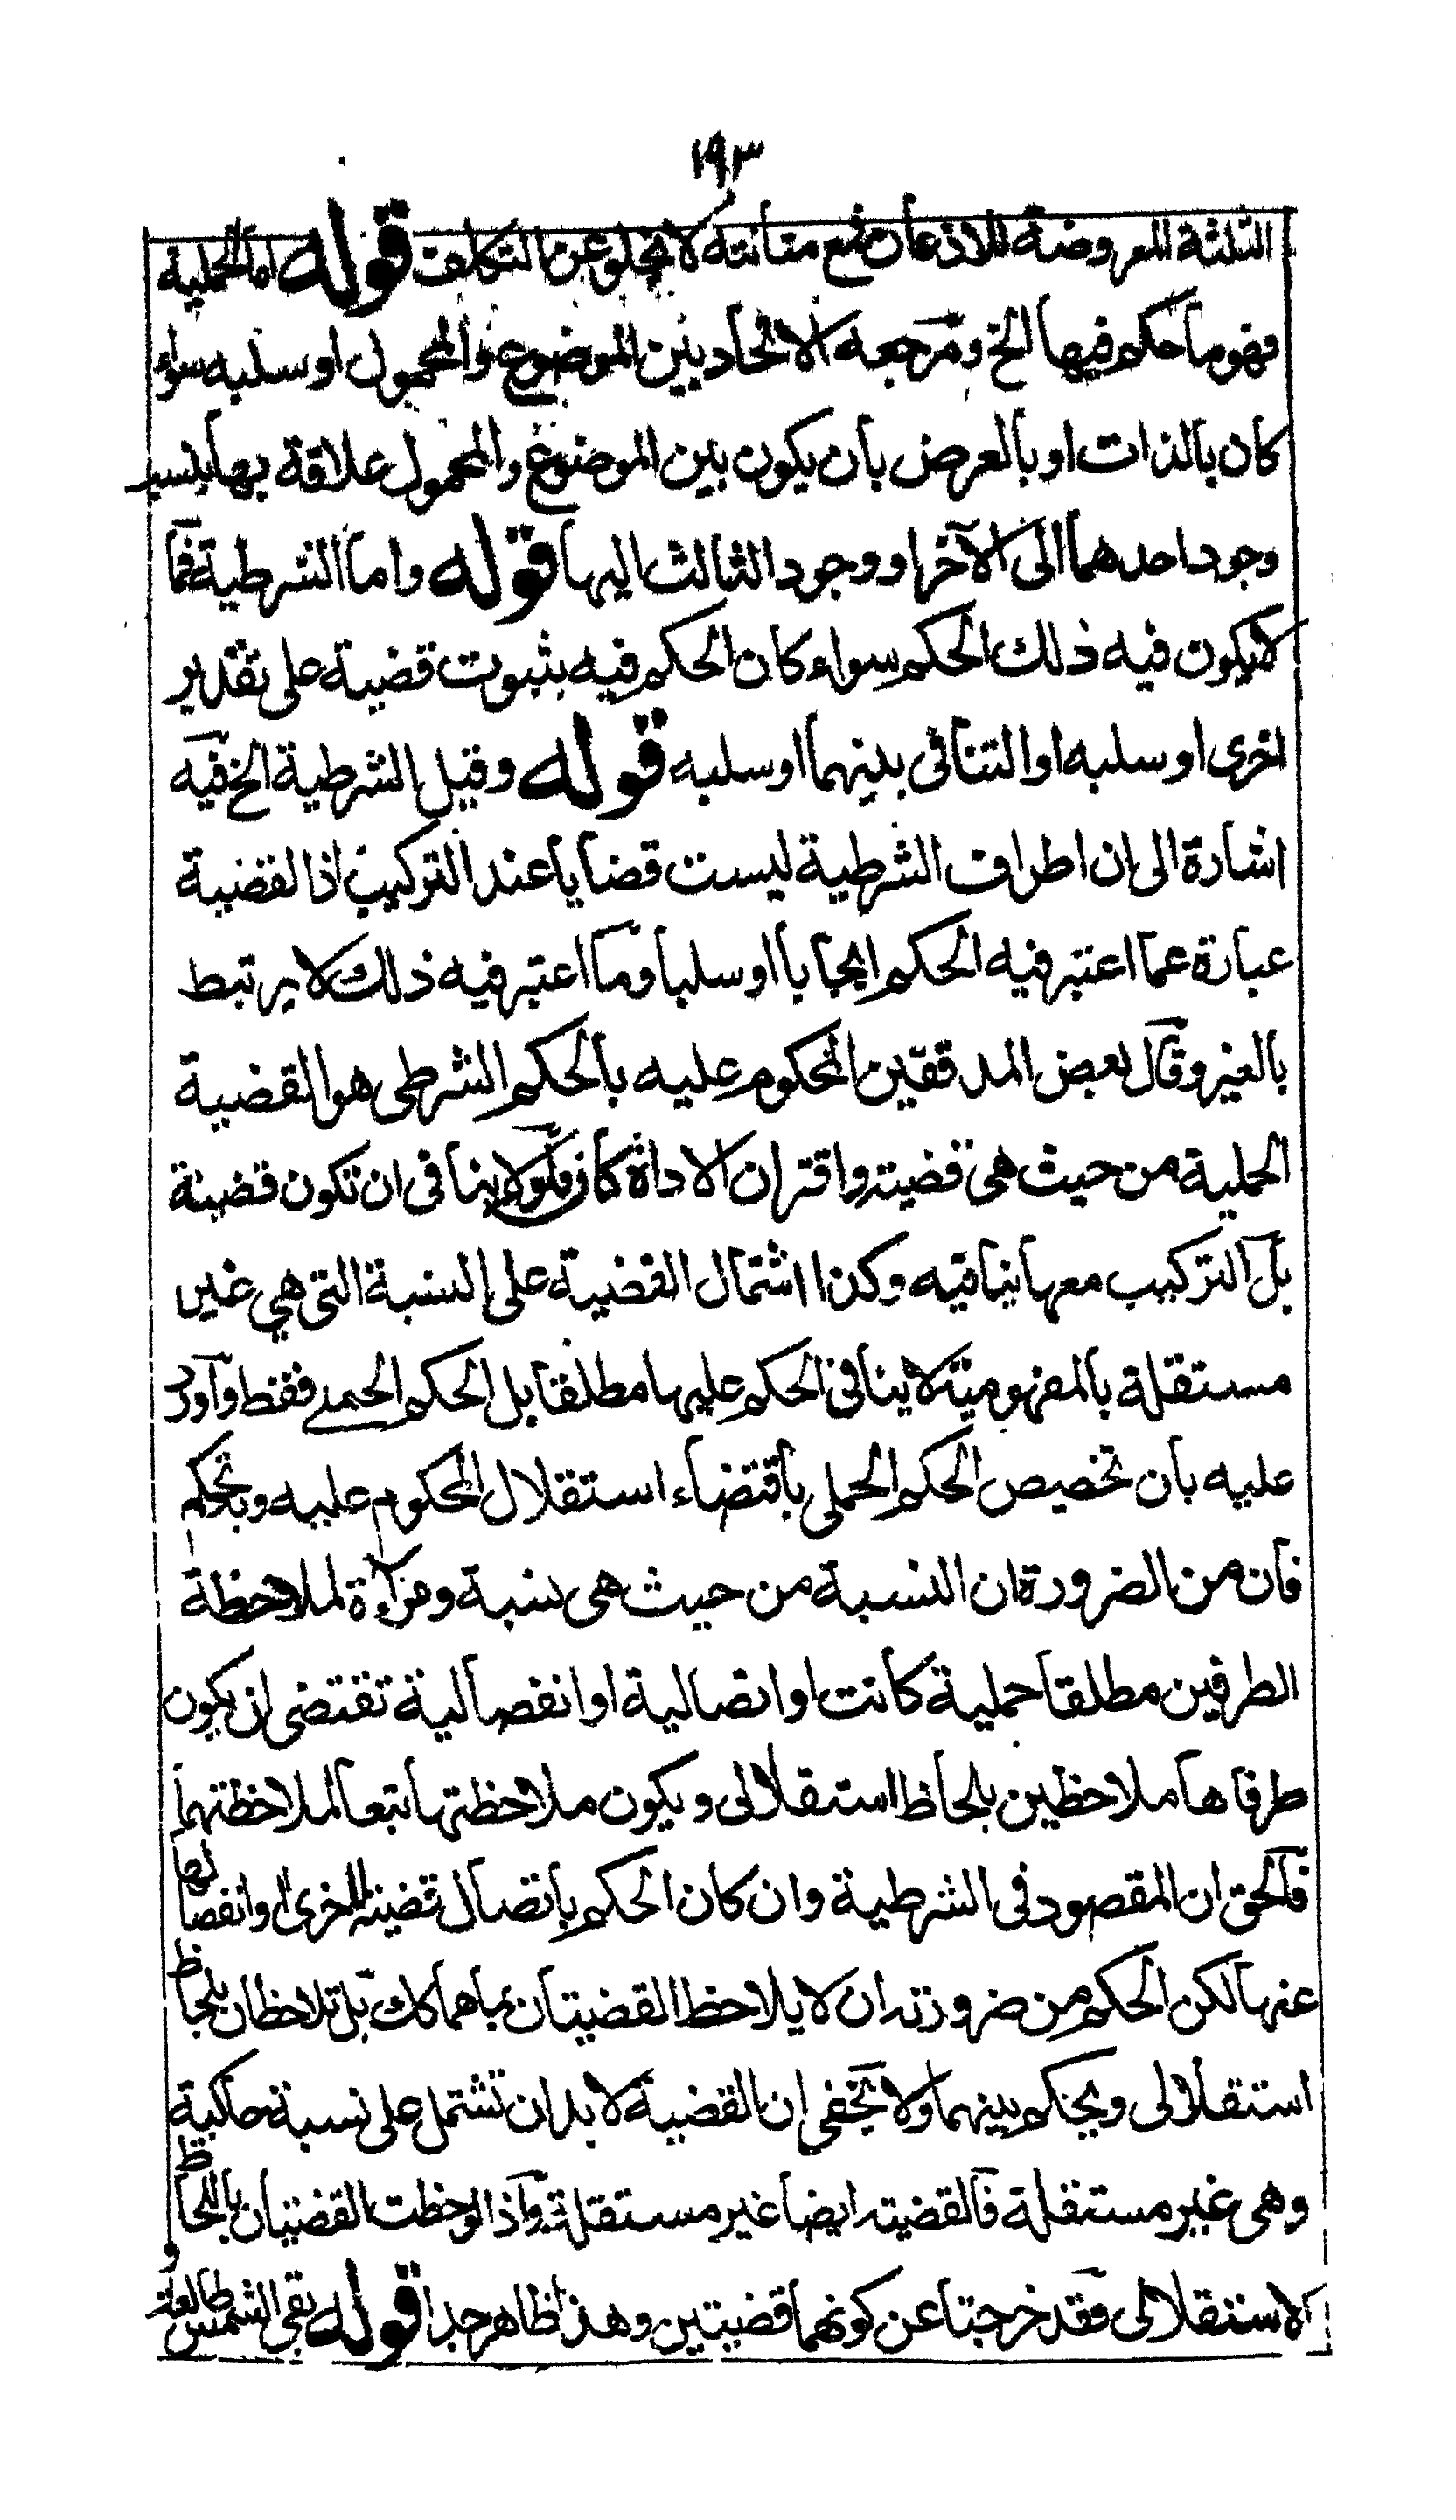 ١٩٣
الثلثة المعروضة للاذعان فمع متانته لا يخلو عن التكلف قوله اما الحملية
فهو ما حكم فيها الخ ومرجعه الاتحاد بين الموضوع والمحمول او سلبه سواء
كان بالذات او بالعرض بان يكون بين الموضوع والمحمول علاقة بها ينسب
وجود احدهما الى الآخر او وجود الثالث اليها قوله واما الشرطية فما
لا يكون فيه ذلك الحكم سواء كان الحكم فيه بثبوت قضية على تقدير
اخرى او سلبه او التنافى بينهما او سلبه قوله وقيل الشرطية الخ فيه
اشارة الى ان اطراف الشرطية ليست قضايا عند التركيب اذ القضية
عبارة عما اعتبر فيه الحكم ايجابا او سلبا وما اعتبر فيه ذلك لا يرتبط
بالغير وقال بعض المدققين المحكوم عليه بالحكم الشرطى هو القضية
الحملية من حيث هى قضيته واقتران الاداة كان ولو لا ينافى ان تكون قضية
بل التركيب معها ينافيه وكذا اشتمال القضية على النسبة التى هي غير
مستقلة بالمفهومية لا ينافى الحكم عليها مطلقا بل الحكم الحملے فقط وآورد
عليه بان تخصيص الحكم الحملى باقتضاء استقلال المحكوم عليه وبه تحكم
فان من الضرورة ان النسبة من حيث هى نسبة ومرآءة لملاحظة
الطرفين مطلقا حملية كانت او اتصالية او انفصالية تقتضى ان يكون
طرفاها ملاحظين بلحاظ استقلالى ويكون ملاحظتها تبعا لملاحظتهما
فالحق ان المقصود فى الشرطية وان كان الحكم باتصال قضية لاخرى او انفصالها
عنها لكن الحكم من ضرورته ان لا يلاحظ القضيتان بما هما كك بل تلاحظان بلحاظ
استقلالى ويحكم بينهما ولا يخفى ان القضية لا بد ان تشتمل على نسبة حاكية
وهى غير مستقلة فالقضيته ايضا غير مستقلة واذا لوحظت القضيتان باللحاظ
الاستقلالى فقد خرجتا عن كونهما قضيتين وهذا ظاهر جدا قوله بقى الشمس طالعة